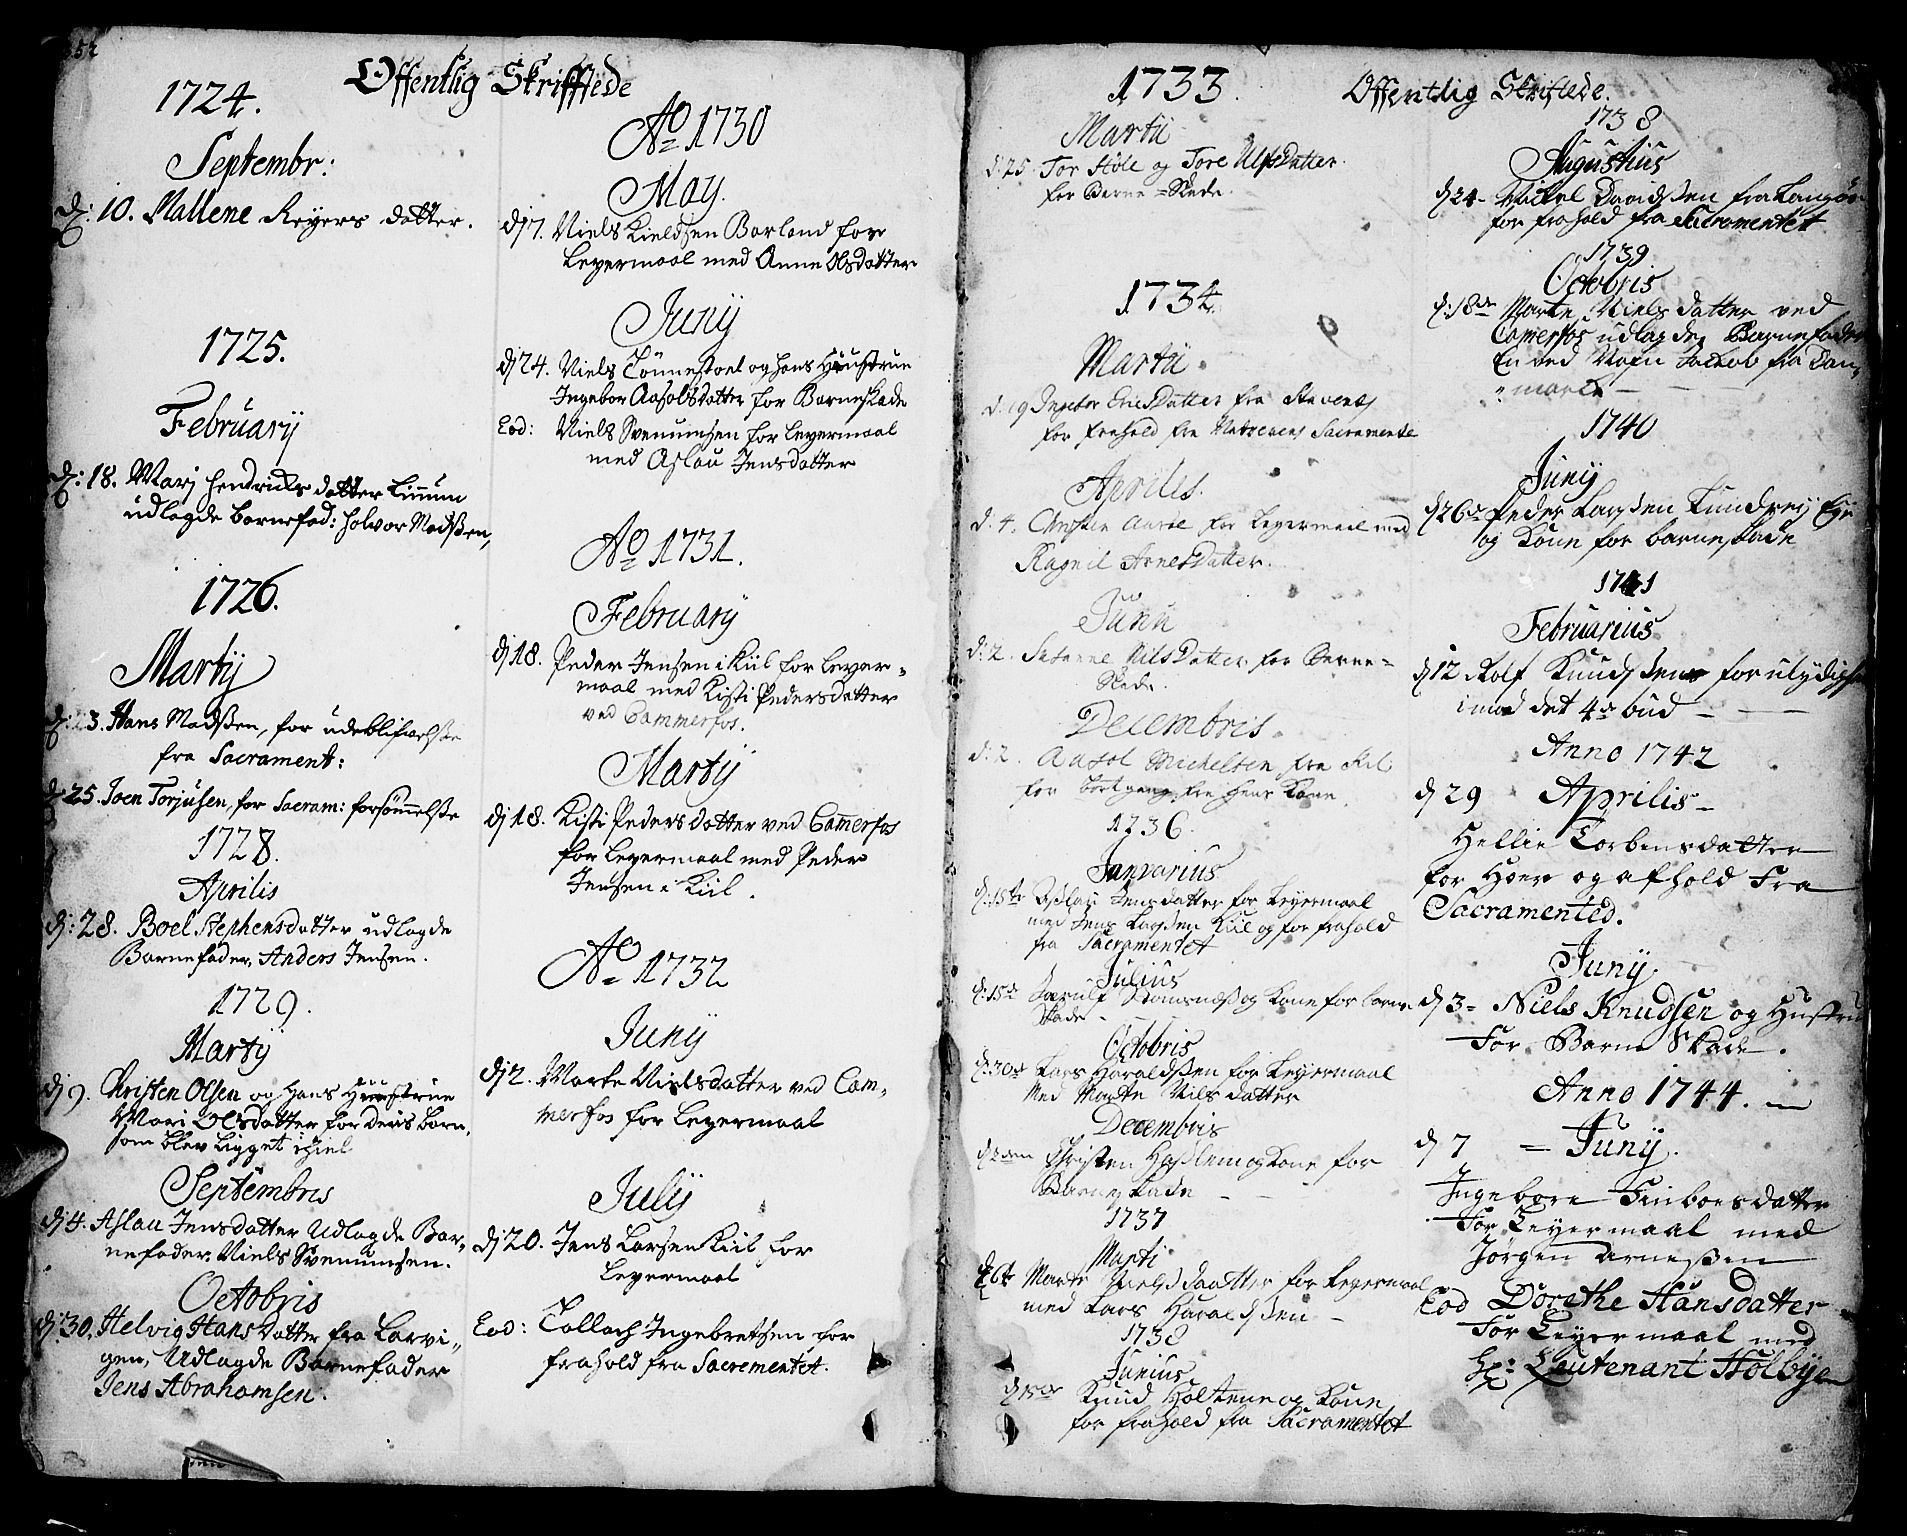 52
Offentlig Skrifftede
1724.
Septembr:
d: 10. Mallene Reyers datter.
1725.
February
d: 18. Marj Hendricks datter
udlagde barnefad: Holvor Madsßen,
1726.
Martij
d: 23. Hans Madsßen, for udeblifvelse
fra Sacrament:
d 25. Joen Torjusen, for Sacram: forsømmelse
1728.
Aprilis
dj: 28. Boel Stephensdatter udlagde
Barnefader, Anders Jensen.
1729.
Martij
dj 9. Christen Olsen og Hans Huustrue
Mari Olsdatter for deris barn,
som blev ligget ihiel
Septembris
dj 4. Aslau Jensdatter Udlagde Bar-
nefader. Niels Svenumsen.
Octobris
dj 30. Helvig Hansdatter fra Larvi-
gen, Udlagde Barnefader
Jens Abrahamsen.
Ao 1730
May.
dj 7. Niels Kieldsen Borland for
Leyermaal med Anne Olsdatter
Junij
dj 24. Niels Tønnestoel og hans Huustrue
Ingebor Aasolsdatter for Barneskade
Eod: Niels Svenumsen for leyermaal
med Aslau Jensdatter
Ao 1731.
February
dj 18. Peder Jensen i Kiil for Leyer-
maal med Kisti Pedersdatter
ved Cammerfos.
Martij
dj 18. Kisti Pedersdatter ved Cammerfos
for Leyermaal med Peder
Jensen i Kiil.
Ao 1732
Junij
dj 2. Marte Nielsdatter ved Cam-
merfos for Leyermaal
Julij
dj 20. Jens Larsen Kiil for
Leyermaal
Eod: Tollach Ingebretsen for
frahold fra Sacrementet.
1733.
Offentlig Skriftede.
Martii
d. 25. Tor Hole og Tore Ulfsdatter.
for Berne-Skade.
1734.
Martii
d. 19 Ingebor EricsDatter fra Stavens
for frahold fra Sacramente
Aprilis.
d. 4. Christen for Legermaal med
Ragnil ArnesDatter.
Junii
d: 2. Susanne NilsDatter for Berne-
Skade.
Decembris.
d: 2. Aasol Michelsen fra Kil
for bortgang fra hans Kone.
1736.
Januarius
d: 15te Aslau Jensdatter for Leyermaal
med Jens Larsen Kiil og for frahold
fra Sacramentet
Julius
d: 15de og Kone for barne
Skade -
Octobris
d: 30de Lars Haraldsßen for Leyermaal
Med Marte Nilsdatter
Decembris
d 2den Christen Haslem og Kone for
Barneskade - -
1737
Marti
d 6te Marte Nielsdaatter for Leyermaal
med Lars Haraldsßen -
1738
Junius.
Knud Holtene og Kone
for frahold fra Sacramentet
1738
Augustius
d 24- Mickel Davidsßen fra Langøe
for frahold fra Sacramentet
1739
Octobris
d: 18de Marte Nielsdatter ved
Camerfos udlagde Barnefader
En ved Nafn Jackob fra Dan-
"marck - - -
1740
Juny
d 26de Peder Larsßen Eje
og Kone for barneskade
1741
Februarius
d 12 Rolf Knudsßen for ulydighed
imod det 4de bud - - -
Anno 1742
d 29 Aprilis -
Hellie Torbensdatter
for Hoer og afhold Fra
Sacramented.
Juny.
d 3- Niels Knudsen og Hustru
For Barne Skade.
Anno 1744.
d 7 = Juny.
Ingebore Finboesdatter
For Leyermaal med
Jørgen Arnesßen
Eod Dorethe Hansdatter
For Leyermaal med
Hr: Leutenant Holbye